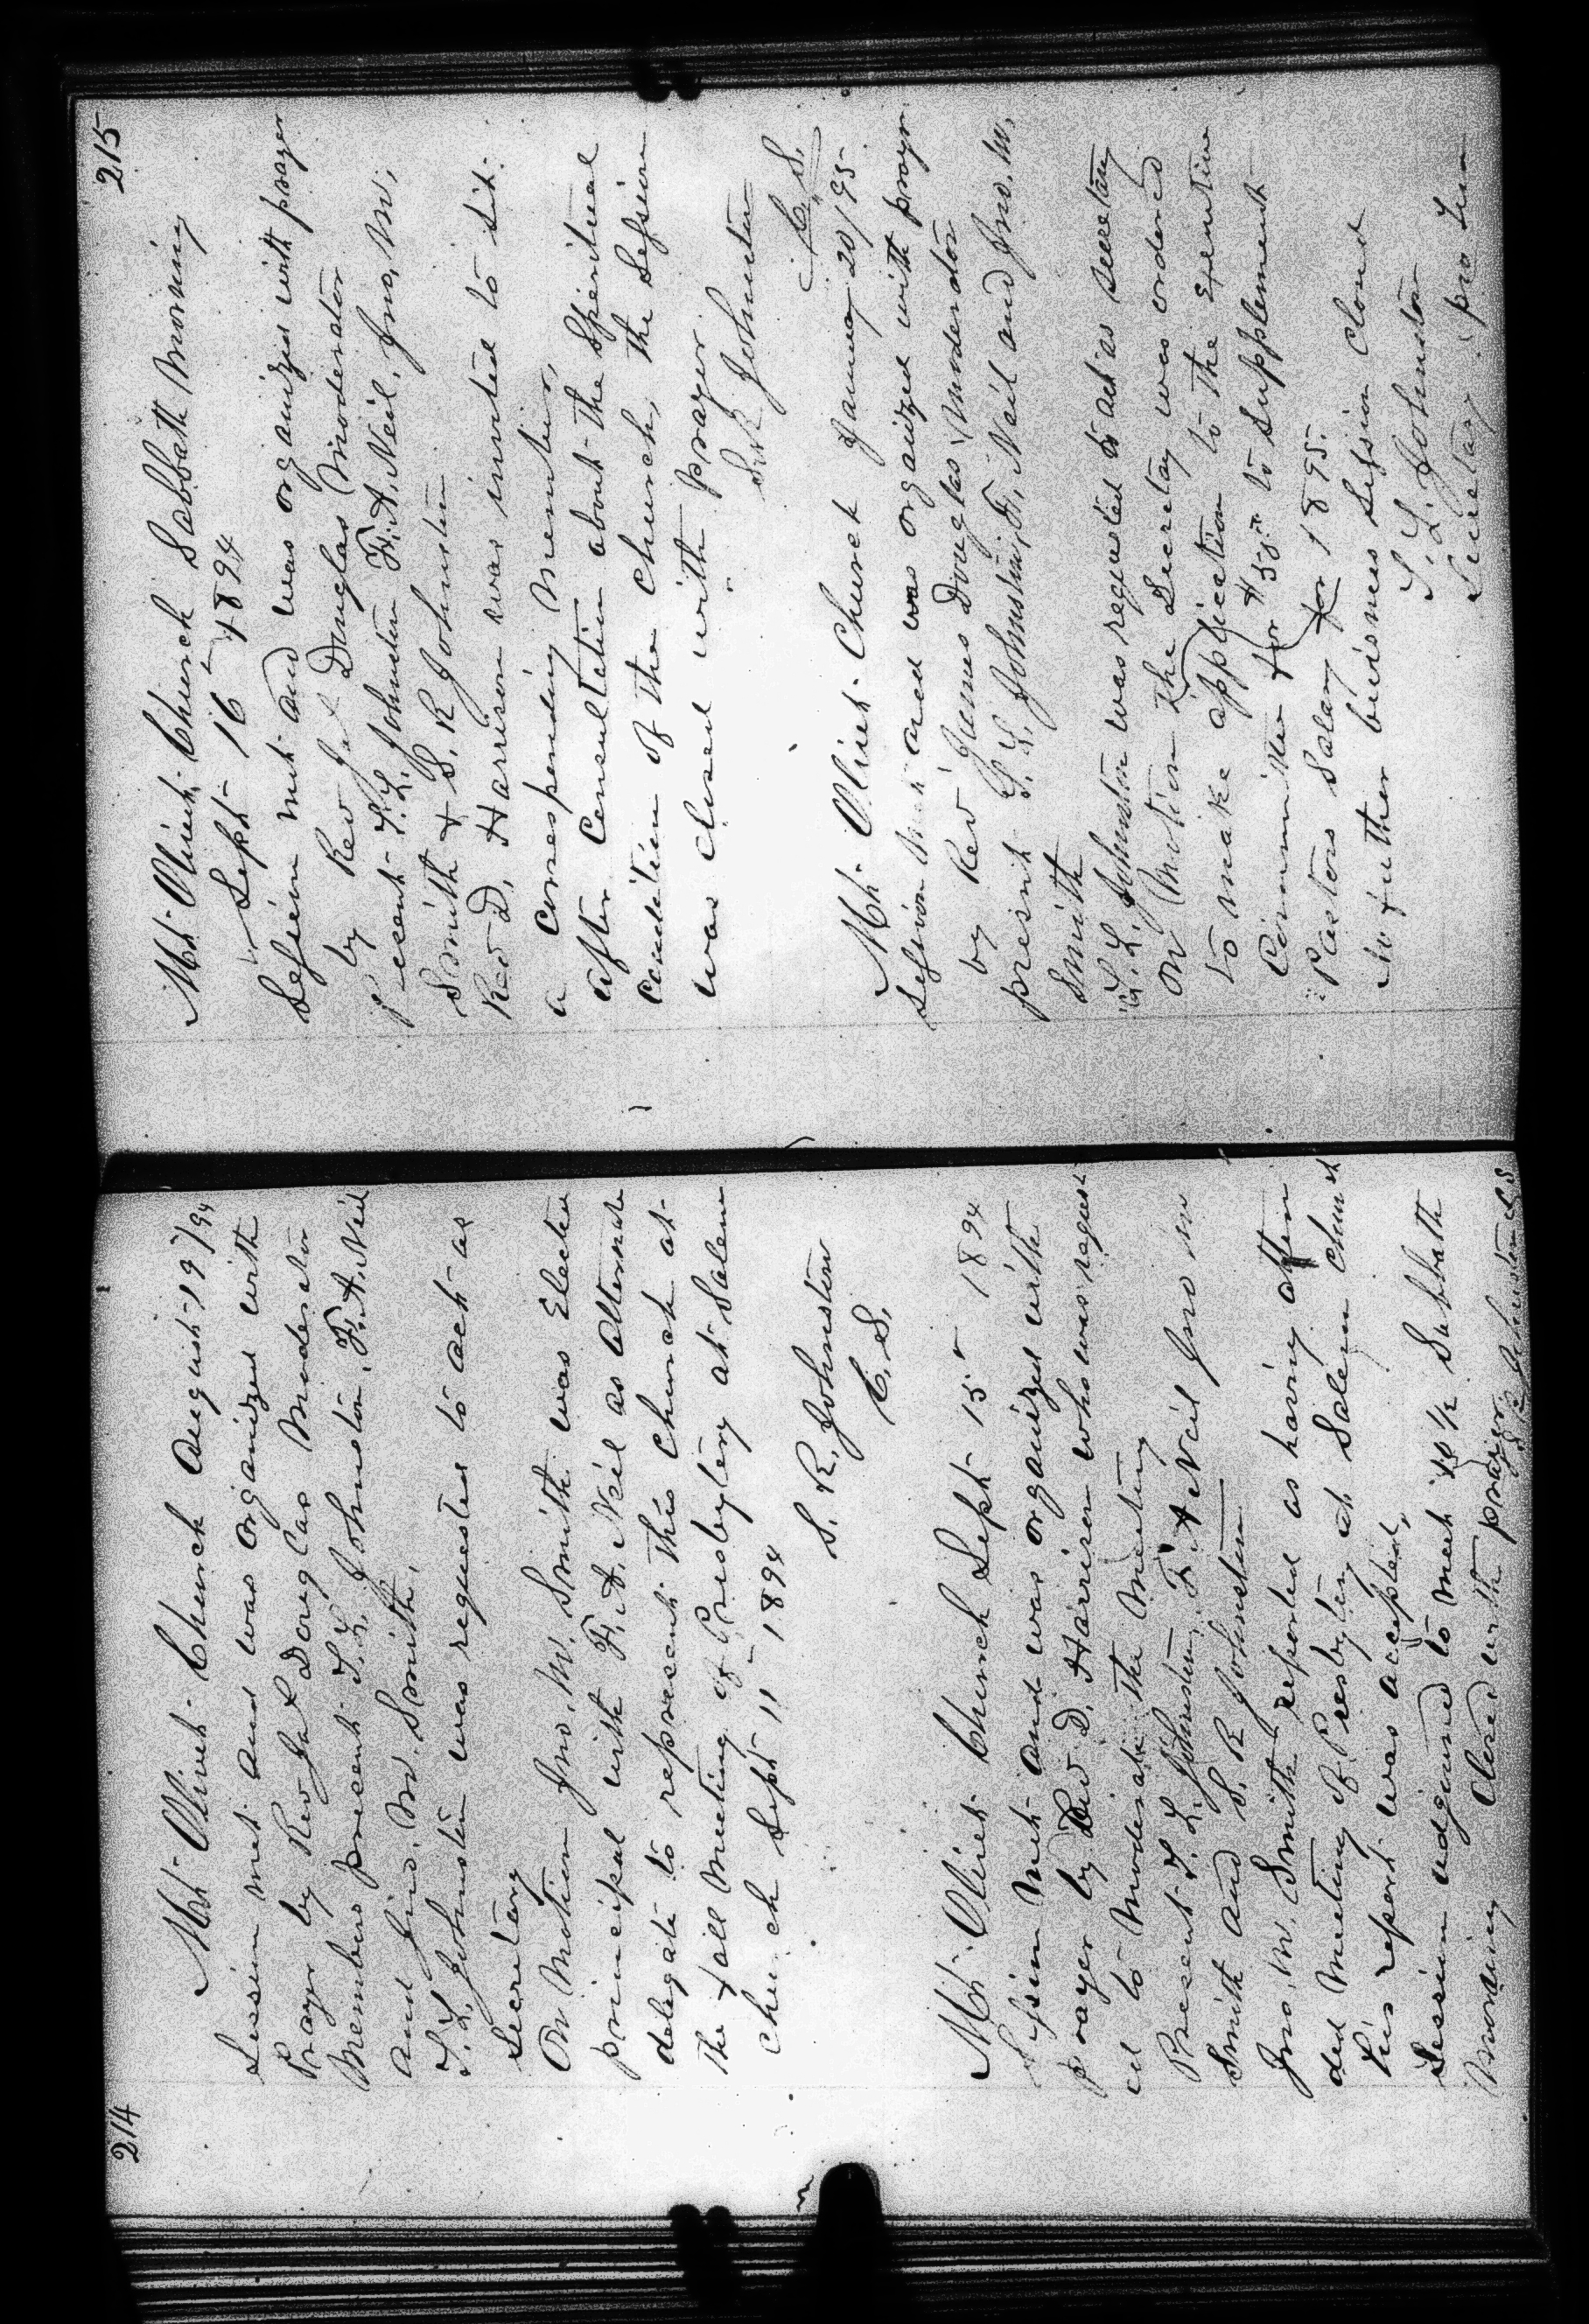 214
Mt. Olivet Church August 19/94
Session met and was organized with
Prayer by Rev Jas L Douglas Moderator
Members present T. L. Johnston, F. A. Neil
and Jno. M. Smith.
T. L. Johnston was requested to act as
Secretary
On Motion Jno. M. Smith was Elected
principal with F. A. Neil as alternate
delegate to represent this Church at
the fall Meeting of Presbytery at Salem
Church Sept 11 1894
S. R. Johnston
C. S.
Mt. Olivet Church Sept 15 1894
Session Met and was organized with
prayer by Rev D. Harrison who was request
ed to Moderate the Meeting
Present T. L. Johnston, F. A Neil Jno M
Smith and S. R Johnston
Jno. M. Smith reported as having atten
ded Meeting of Presbytery at Salem Church
his report was accepted.
Session adjourned to meet 10 1/2 Sabbath
Morning Closed with prayer
S R Johnston C S
215
Mt. Olivet Church Sabbath Morning
Sept 16 1894
Session met and was organized with prayer
by Rev J L Douglas Moderator
Present T. L. Johnston F. A. Neil, Jno. M.
Smith & S. R Johnston
Rev D. Harrison was invited to sit
a corresponding member,
after Consultation about the Spiritual
Condition of the Church, the Session
was closed with prayer
S R Johnston
C. S.
Mt. Olivet Church January 20/95
Session met and was organized with prayr
by Rev James Douglas Moderator
present T. L. Johnston, F. Neil and Jno. M.
Smith
T. L. Johnston was requested to act as secretary
On Motion the Secretary was ordered
to make application to the Executive
Committee for $50 to Supplement
Pastors Salary for 1895.
No futher buisness Session Closed
T. L. Johnston
Secretary pro tem